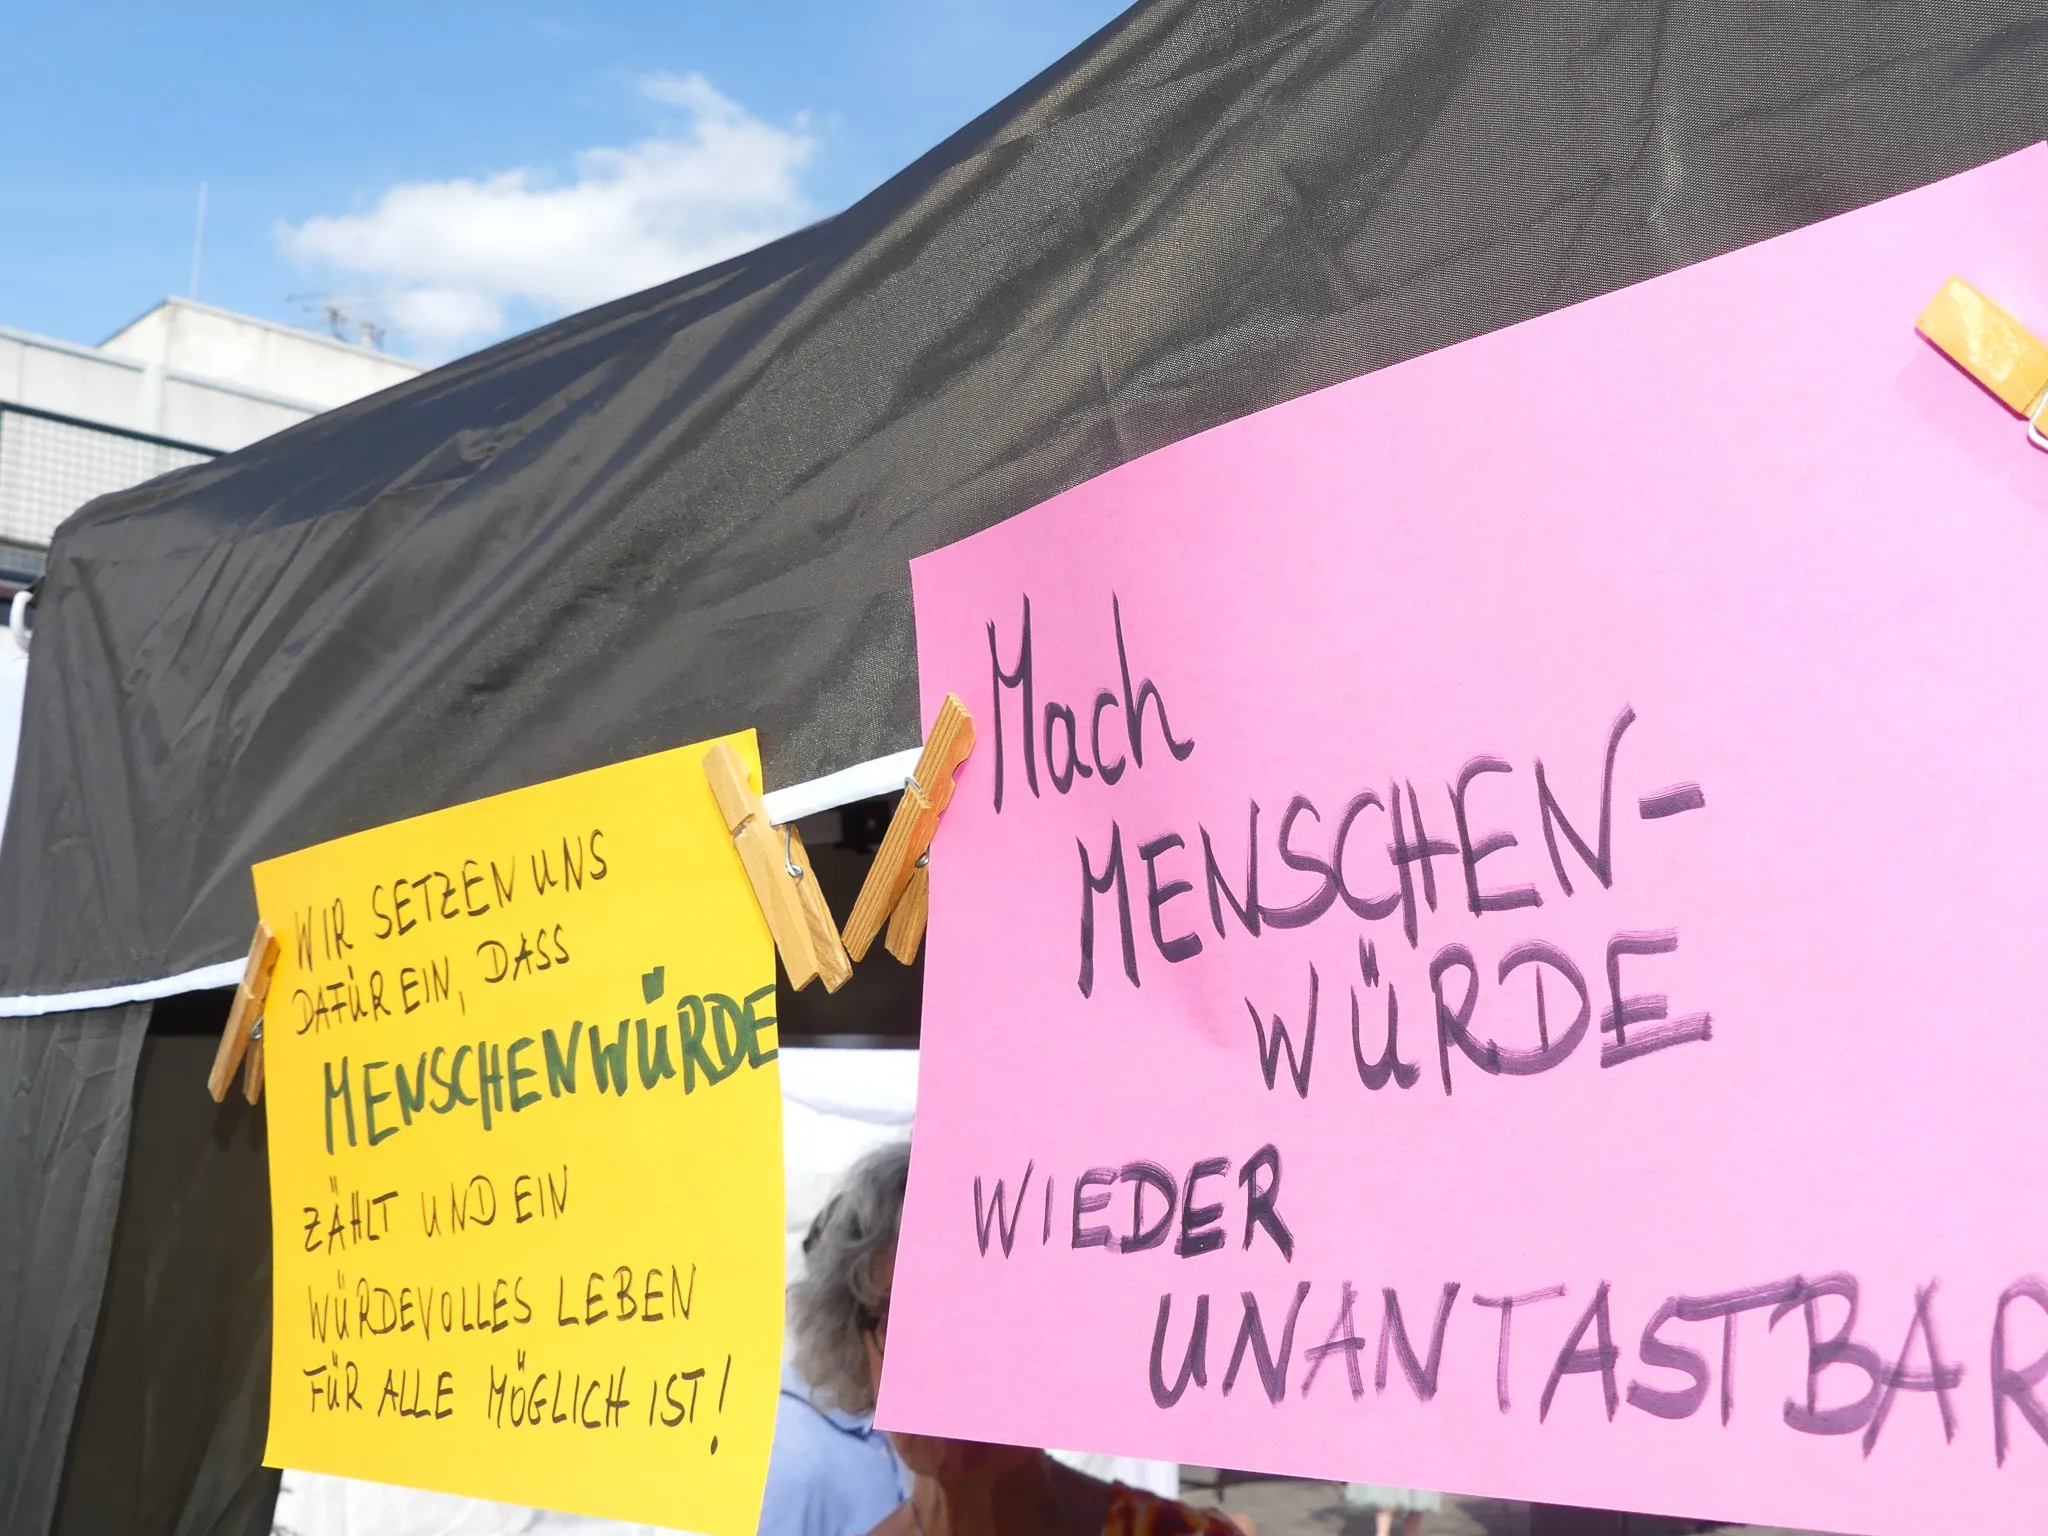 WIR SETZEN UNS
DAFÜR EIN, DASS
MENSCHENWÜRDE
ZÄHLT UND EIN
WÜRDEVOLLES LEBEN
FÜR ALLE MÖGLICH IST!
Mach
MENSCHEN-
WÜRDE
WIEDER
UNANTASTBAR